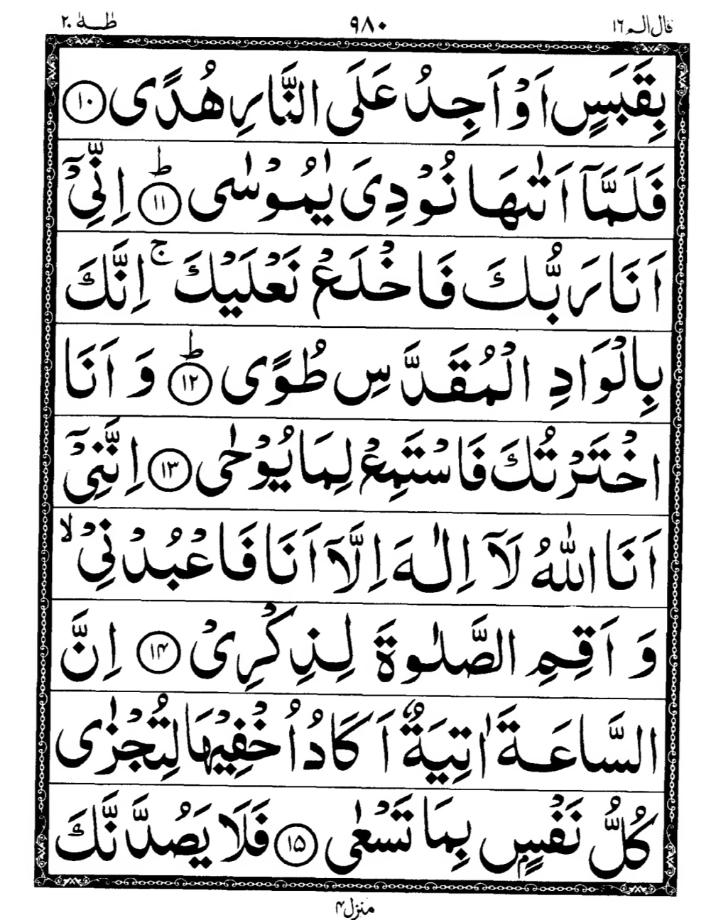 قال الم ١٦ ٩٨٠ طٰهٰ ٢٠
بِقَبَسٍ اَوْ اَجِدُ عَلَى النَّارِ هُدًى ﴿١٠﴾
فَلَمَّاۤ اَتٰىهَا نُوْدِىَ يٰمُوْسٰى ﴿١١﴾ؕ اِنِّىْۤ
اَنَا رَبُّكَ فَاخْلَعْ نَعْلَيْكَ ۚ اِنَّكَ
بِالْوَادِ الْمُقَدَّسِ طُوًى ﴿١٢﴾ؕ وَ اَنَا
اخْتَرْتُكَ فَاسْتَمِعْ لِمَا يُوْحٰى ﴿١٣﴾ اِنَّنِىْۤ
اَنَا اللّٰهُ لَاۤ اِلٰهَ اِلَّاۤ اَنَا فَاعْبُدْنِىْ ۙ
وَ اَقِمِ الصَّلٰوةَ لِذِكْرِىْ ﴿١۴﴾ اِنَّ
السَّاعَةَ اٰتِيَةٌ اَكَادُ اُخْفِيْهَا لِتُجْزٰى
كُلُّ نَفْسٍۭ بِمَا تَسْعٰى ﴿١۵﴾ فَلَا يَصُدَّنَّكَ
منزل ۴